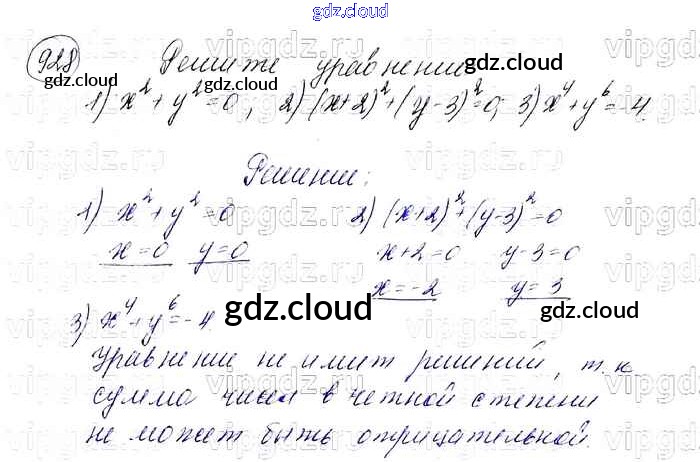 gdz.cloud
928 Решите уравнение
gdz.cloud gdz.cloud
1) x² + y² = 0; 2) (x+2)² + (y-3)² = 0; 3) x⁴ + y⁶ = -4.
Решение:
1) x² + y² = 0 2) (x+2)² + (y-3)² = 0
x = 0 y = 0 x+2=0 y-3=0
x = -2 y = 3
3) x⁴ + y⁶ = -4. gdz.cloud gdz.cloud
Уравнение не имит решений, т.к
сумма чисел в четной степени
не может быть отрицательной.